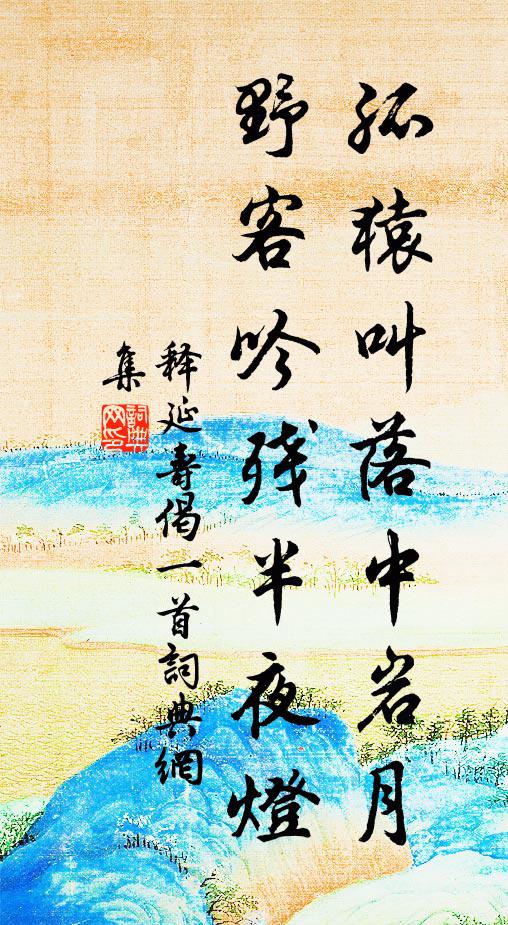 孤猿叫落中岩月
野客吟残半夜燈
释延壽偈一首詞典網
集
詞典網印